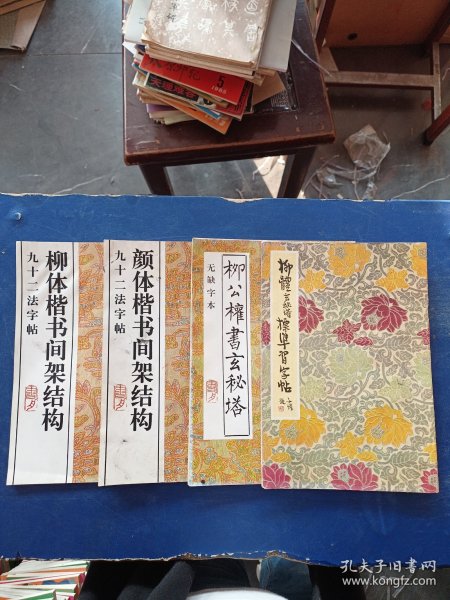 5
1988
柳体楷书间架结构
九十二法字帖
颜体楷书间架结构
九十二法字帖
柳公權書玄秘塔
无缺字本
柳體玄秘塔標準習字帖
孔夫子旧书网
www.kongfz.com